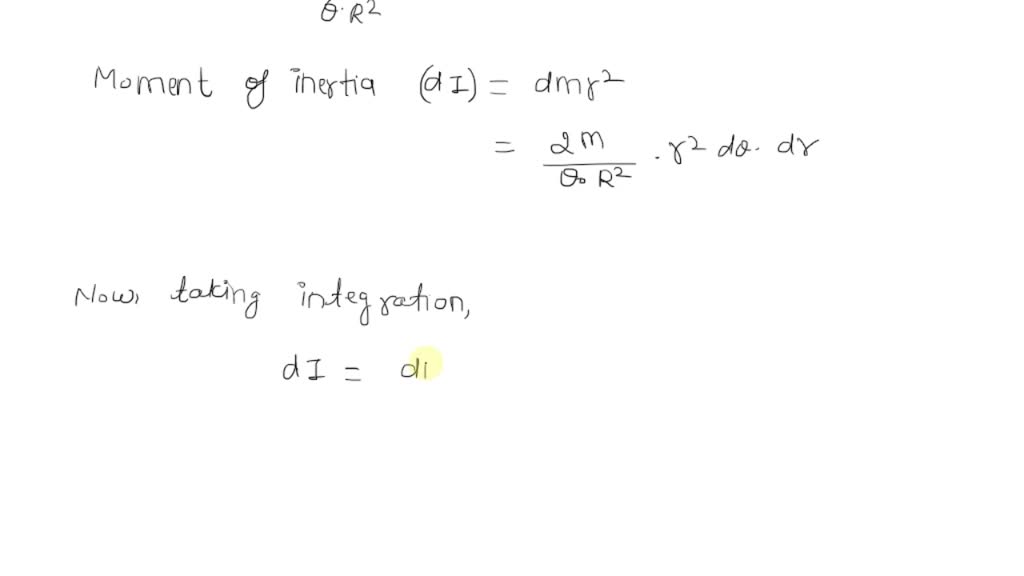 θ·R²
Moment of inertia (dI) = dmr²
= 2m/θ₀R² · r² dθ· dr
Now, taking integration,
dI = di